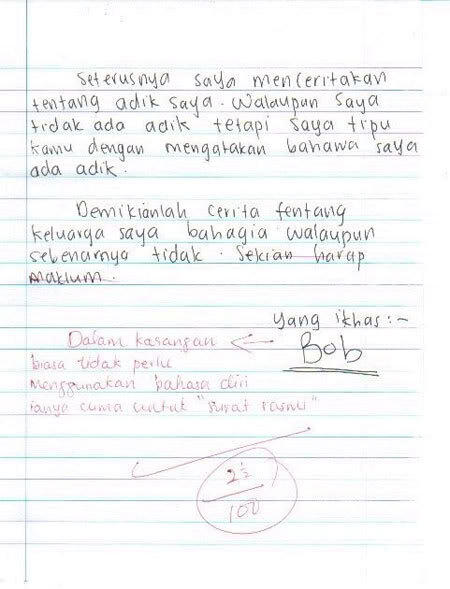 Seterusnya saya menceritakan
tentang adik saya. Walaupun saya
tidak ada adik tetapi saya tipu
kamu dengan mengatakan bahawa saya
ada adik.
Demikianlah cerita tentang
keluarga saya bahagia walaupun
sebenarnya tidak. Sekian harap
maklum.
Yang ikhas:-
Bob
Dalam karangan
biasa tidak perlu
menggunakan bahasa diri
ianya cuma untuk "surat rasmi"
2 1/2
100